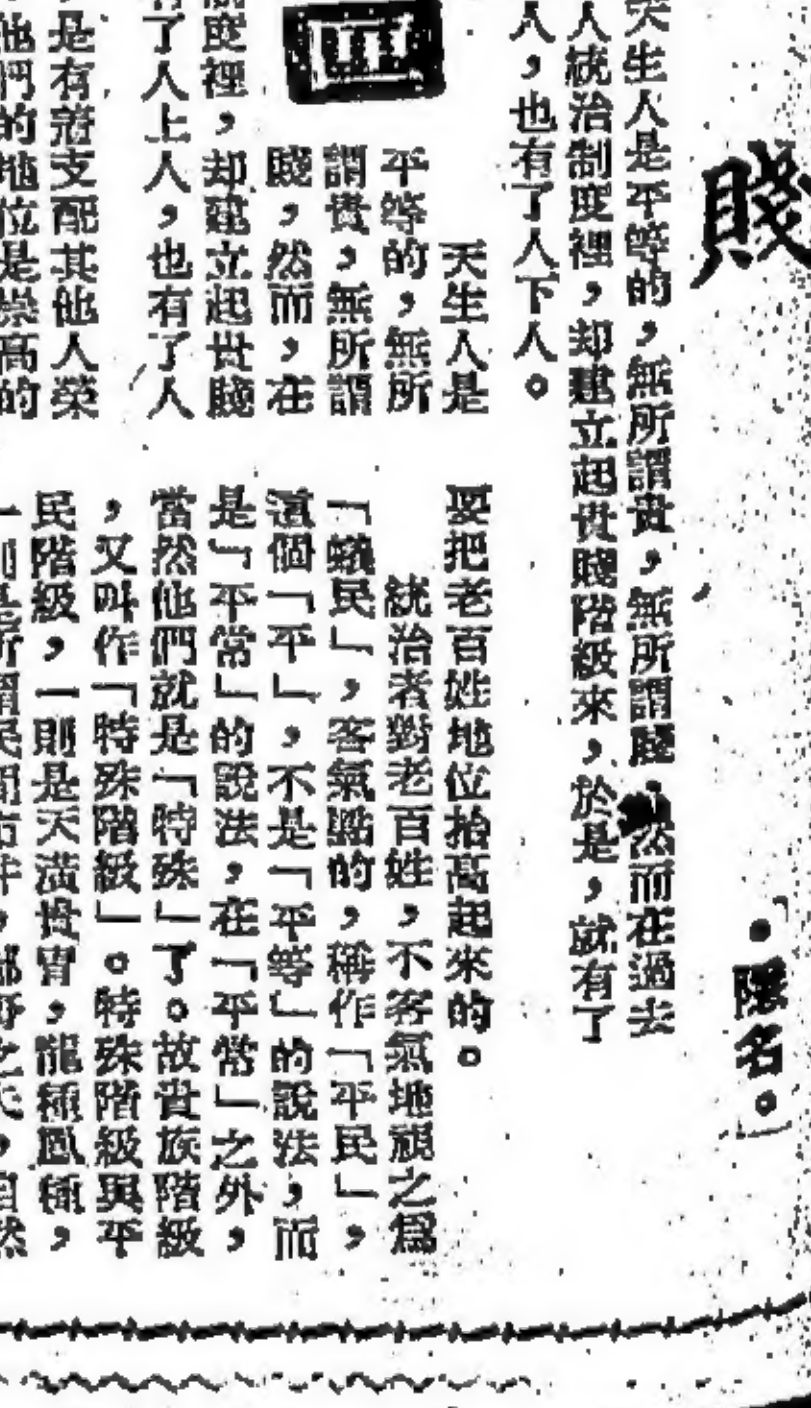 賤
•隱名。
天生人是平等的，無所謂貴，無所謂賤，然而在過去
人統治制度裡，却建立起貴賤階級來，於是，就有了
人，也有了人下人。
天生人是
平等的，無所
謂貴，無所謂
賤，然而，在
度裡，却建立起貴賤
有了人上人，也有了人
，是有着支配其他人榮
他們的地位是崇高的
要把老百姓地位抬高起來的。
統治者對老百姓，不客氣地頑之爲
「蟻民」，客氣點的，稱作「平民」，
這個「平」，不是「平等」的說法，而
是「平常」的說法，在「平常」之外，
當然他們就是「特殊」了。故貴族階級
，又叫作「特殊階級」。特殊階級與平
民階級，一則是天潢貴冑，龍種鳳種，
一則是所謂民間市井，鄙野之夫，自然